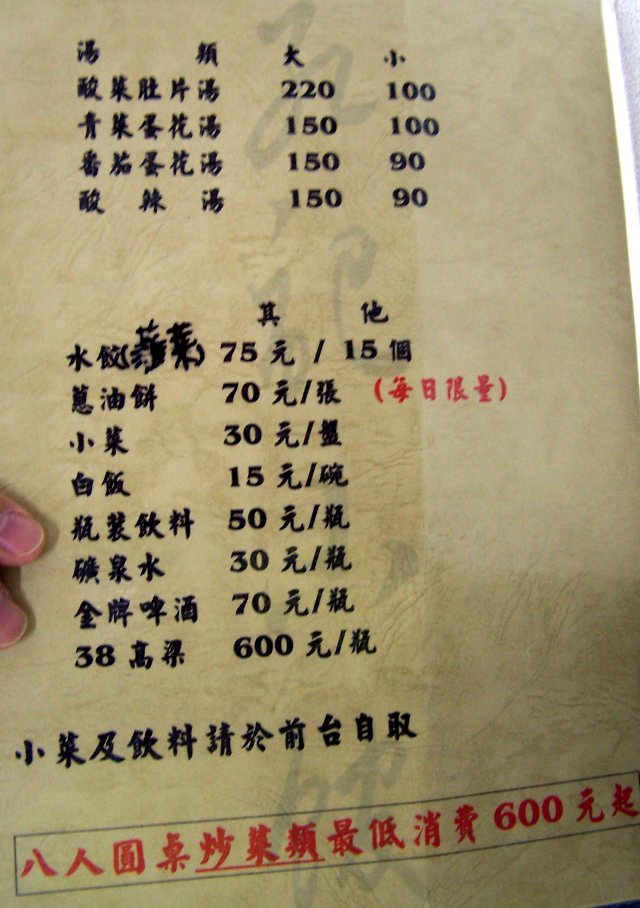 湯 類 大 小
酸菜肚片湯 220 100
青菜蛋花湯 150 100
番茄蛋花湯 150 90
酸辣湯 150 90
其他
水餃(韮菜) 75元/15個
蔥油餅 70元/張 (每日限量)
小菜 30元/盤
白飯 15元/碗
瓶裝飲料 50元/瓶
礦泉水 30元/瓶
金牌啤酒 70元/瓶
38高粱 600元/瓶
小菜及飲料請於前台自取
八人圓桌炒菜類最低消費600元起